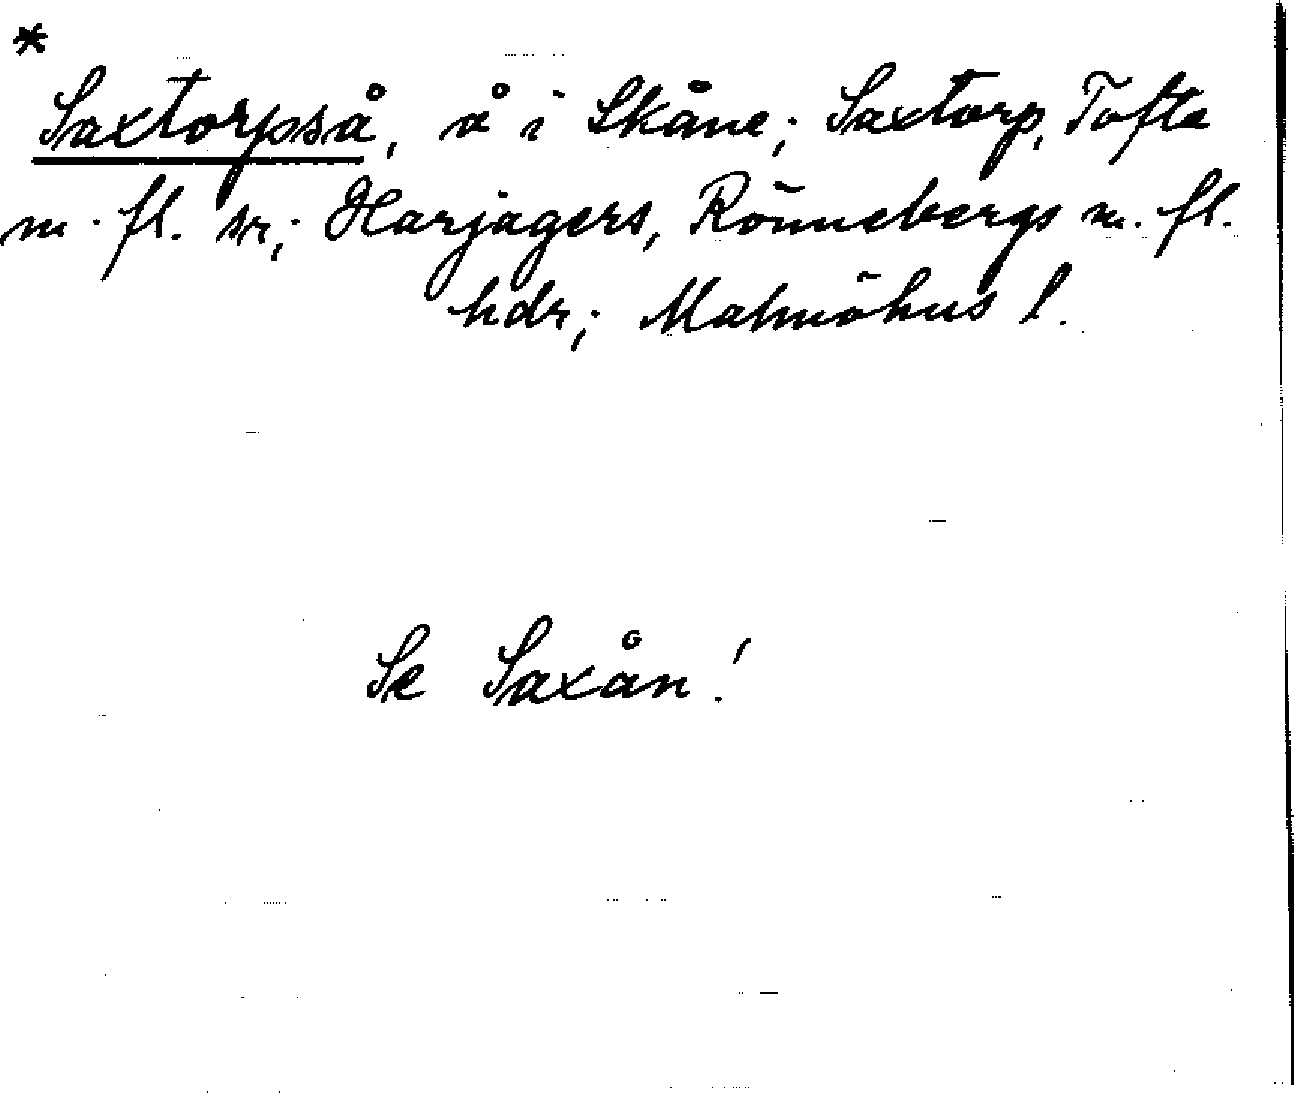 *
Saxtorpså, å i Skåne; Saxtorp, Tofta
m. fl. snr; Harjagers, Rönnebergs m. fl.
hdr; Malmöhus l.
Se Saxån!